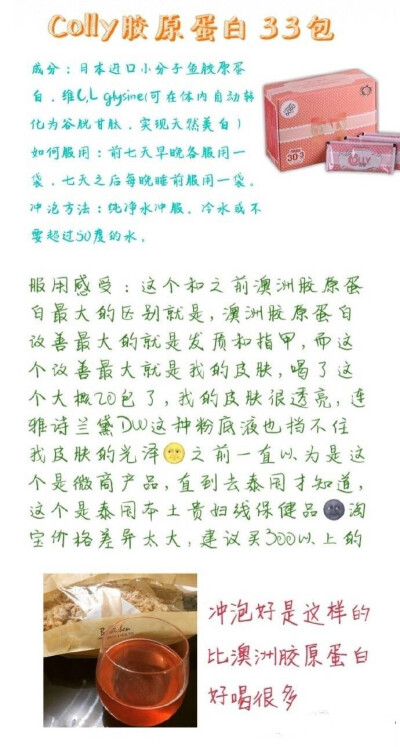 Colly胶原蛋白 33包
成分：日本进口小分子鱼胶原蛋
白，维C,L glysine(可在体内自动转
化为谷胱甘肽，实现天然美白)
如何服用：前七天早晚各服用一
袋，七天之后每晚睡前服用一袋。
冲泡方法：纯净水冲服。冷水或不
要超过50度的水。
COLLY
服用感受：这个和之前澳洲胶原蛋
白最大的区别就是，澳洲胶原蛋白
改善最大的就是发质和指甲，而这
个改善最大就是我的皮肤，喝了这
个大概20包了，我的皮肤很透亮，连
雅诗兰黛DW这种粉底液也挡不住
我皮肤的光泽🌝之前一直以为是这
个是微商产品，直到去泰国才知道，
这个是泰国本土贵妇线保健品🌚淘
宝价格差异太大，建议买300以上的
冲泡好是这样的
比澳洲胶原蛋白
好喝很多